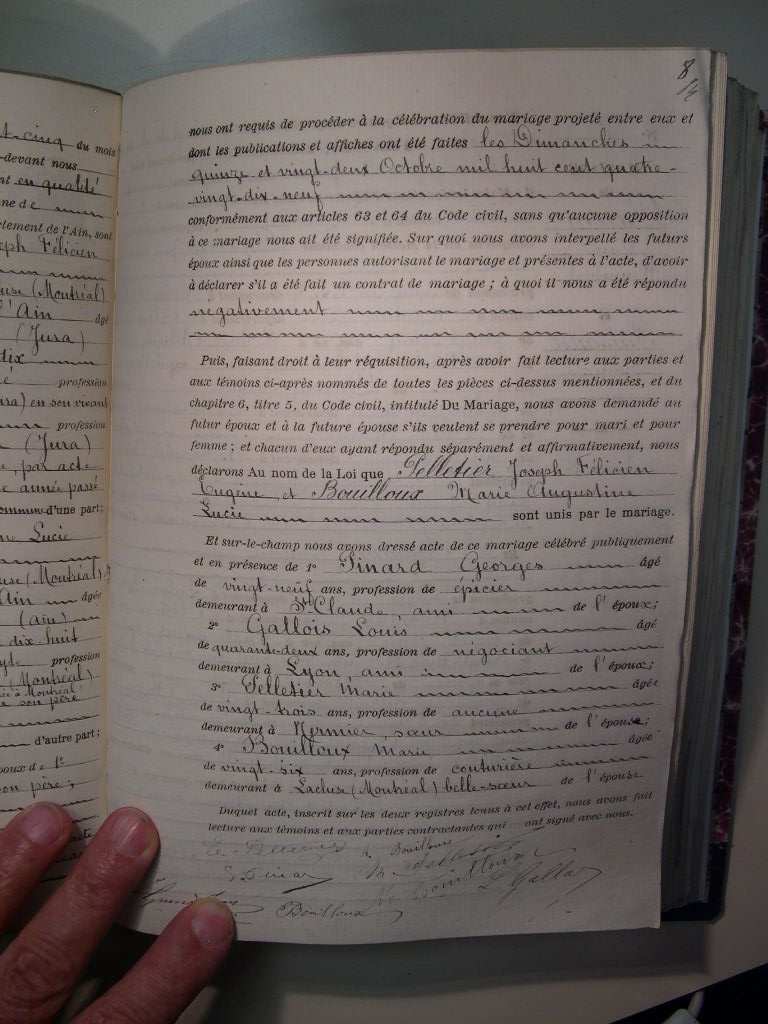 t-cinq du mois
-devant nous
nt en qualité
ne de
rtement de l'Ain, sont
seph Félicien
use (Montréal)
l'Ain âgé
(Jura)
dix
é profession
ura) en son vivant
profession
(Jura)
e, par acte
e année passé
commun d'une part;
Lucie
use (Montréal)
Ain âgée
(ain)
dix huit
profession
(Montréal)
son père
d'autre part;
poux de 1º
on père;
8
nous ont requis de procéder à la célébration du mariage projeté entre eux et
dont les publications et affiches ont été faites les Dimanches
quinze et vingt-deux Octobre mil huit cent quatre-
vingt-dix-neuf
conformément aux articles 63 et 64 du Code civil, sans qu'aucune opposition
à ce mariage nous ait été signifiée. Sur quoi nous avons interpellé les futurs
époux ainsi que les personnes autorisant le mariage et présentes à l'acte, d'avoir
à déclarer s'il a été fait un contrat de mariage; à quoi il nous a été répondu
négativement
Puis, faisant droit à leur réquisition, après avoir fait lecture aux parties et
aux témoins ci-après nommés de toutes les pièces ci-dessus mentionnées, et du
chapitre 6, titre 5, du Code civil, intitulé Du Mariage, nous avons demandé au
futur époux et à la future épouse s'ils veulent se prendre pour mari et pour
femme; et chacun d'eux ayant répondu séparément et affirmativement, nous
déclarons Au nom de la Loi que Pelletier Joseph Félicien
Eugène et Bouilloux Marie Augustine
Lucie sont unis par le mariage.
Et sur-le-champ nous avons dressé acte de ce mariage célébré publiquement
et en présence de 1º Pinard Georges âgé
de vingt-neuf ans, profession de épicier
demeurant à St Claude, ami de l'époux;
2º Gallois Louis âgé
de quarante-deux ans, profession de négociant
demeurant à Lyon, ami de l'époux;
3º Pelletier Marie âgée
de vingt-trois ans, profession de aucune
demeurant à Mermier, sœur de l'époux;
4º Bouilloux Marie âgée
de vingt-six ans, profession de couturière
demeurant à Lacluse (Montréal) belle-sœur de l'épouse
Duquel acte, inscrit sur les deux registres tenus à cet effet, nous avons fait
lecture aux témoins et aux parties contractantes qui ont signé avec nous.
Bouilloux
Bouilloux
Bouilloux